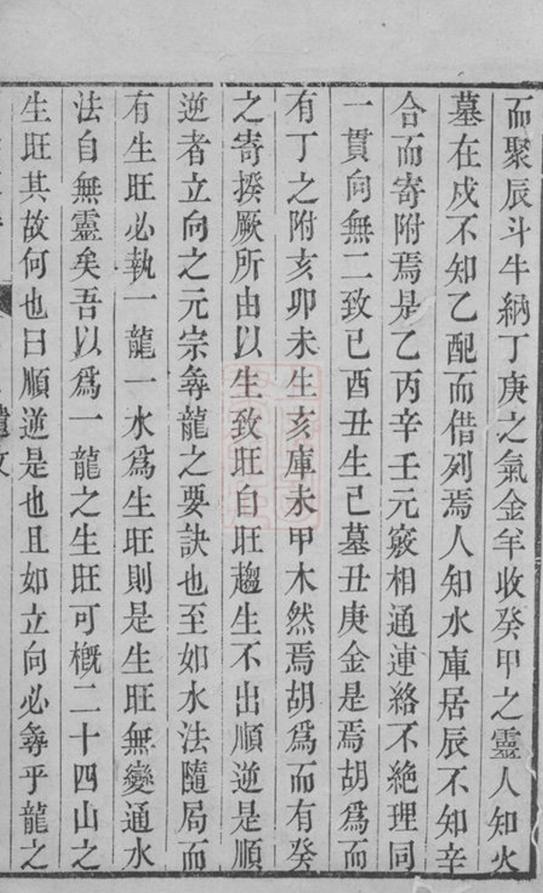 而聚辰斗牛納丁庚之氣金羊收癸甲之靈人知火
墓在戌不知乙配而借列焉人知水庫居辰不知辛
合而寄附焉是乙丙辛壬元竅相通連絡不絕理同
一貫向無二致巳酉丑生巳墓丑庚金是焉胡爲而
有丁之附亥卯未生亥庫未甲木然焉胡爲而有癸
之寄揆厥所由以生致旺自旺趨生不出順逆是順
逆者立向之元宗尋龍之要訣也至如水法隨局而
有生旺必執一龍一水爲生旺則是生旺無變通水
法自無靈矣吾以爲一龍之生旺可概二十四山之
生旺其故何也曰順逆是也且如立向必尋乎龍之